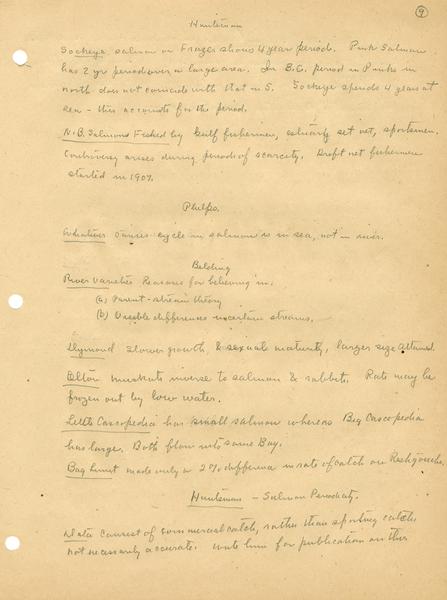 9
Huntsman
Sockeye salmon on Frazer shows 4 year period. Pink Salmon
has 2 yr period over a large area. In B.C. period in Pinks in
north does not coincide with that in S. Sockeye spends 4 years at
sea - this accounts for the period.
N.B. Salmons Fished by Gulf fishermen, estuary set net, sportsmen.
Controversy arises during periods of scarcity. Drift net fishermen
started in 1907.
Phelps.
Whatever causes cycle in salmon is in sea, not in river.
Belding
River Varieties Reasons for believing in.
(a) Parent-stream theory
(b) Visible differences in certain streams.
Dymond slower growth, & sexual maturity, larger size attained.
Elton muskrats inverse to salmon & rabbits. Rats may be
frozen out by low water.
Little Cascapedia has small salmon whereas Big Cascapedia
has large. Both flow into same Bay.
Bag limit made only a 2% difference in rate of catch on Restigouche.
Huntsman - Salmon Periodicity.
Data consist of commercial catch, rather than sporting catch
not necessarily accurate. Write him for publication on this